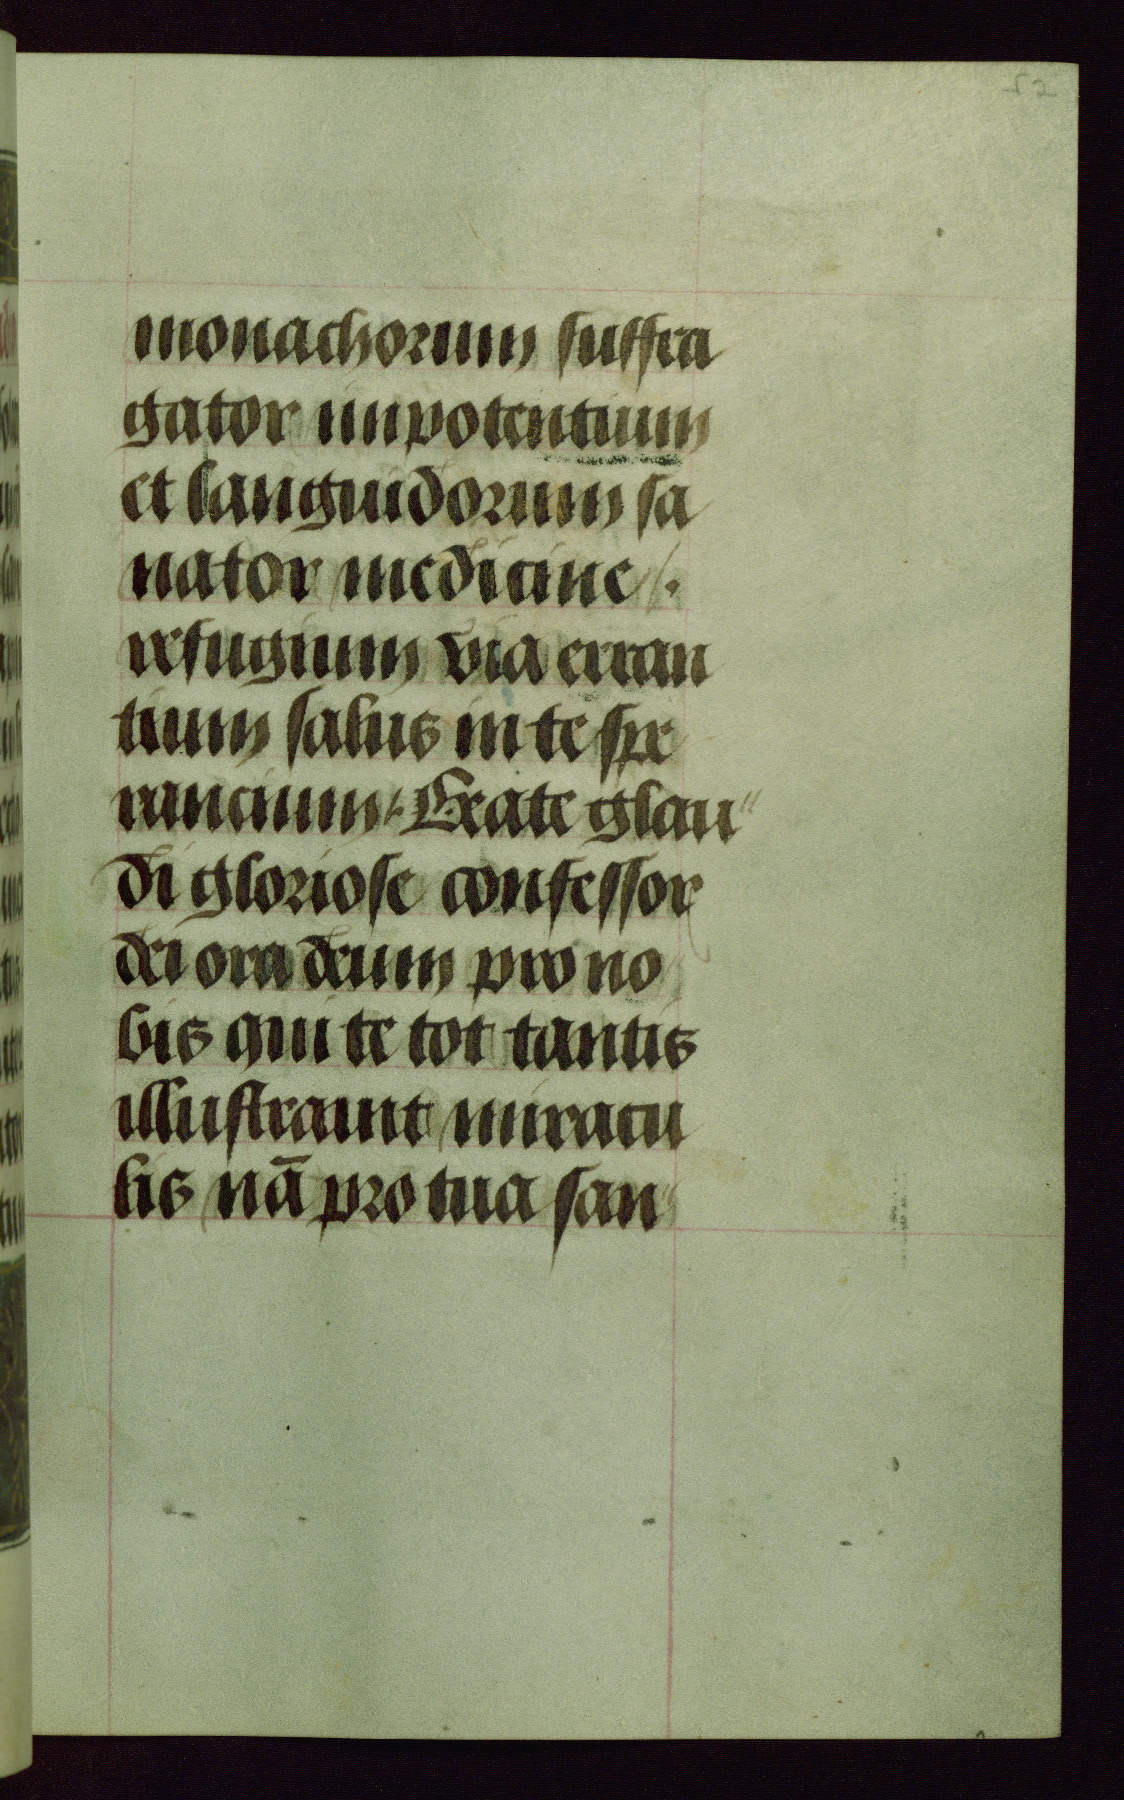 52
monachorum suffra
gator impotentium
et languidorum sa
nator medicine /.
refugium via erran
tium salus in te spe
rancium /. Beate glau"
di gloriose confessor
dei ora deum pro no
bis qui te tot tantis
illustrauit miracu
lis nā pro tua san"